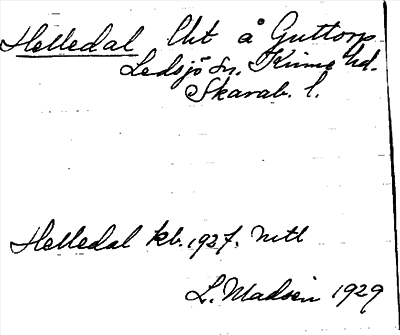 Helledal lht å Guttorp
Ledsjö sn. Kinne hd.
Skarab. l.
Helledal kb. 1927, mtl
L. Madsén 1929